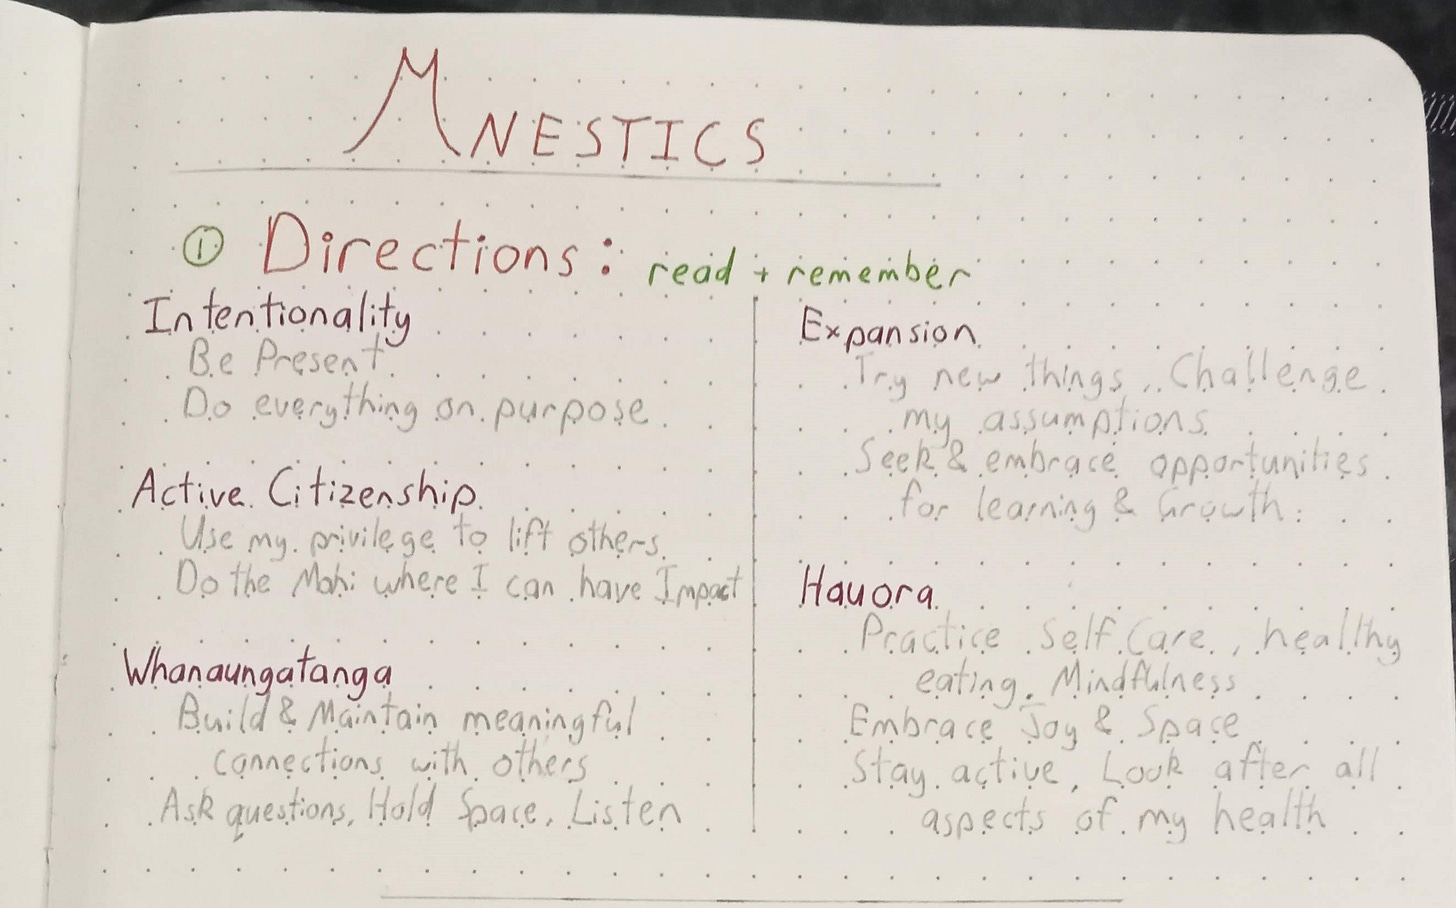 MNESTICS
① Directions: read + remember
Intentionality
Be Present.
Do everything on purpose.
Active Citizenship
Use my privilege to lift others.
Do the Mahi where I can have Impact
Whanaungatanga
Build & Maintain meaningful
connections with others
Ask questions, Hold Space, Listen
Expansion
Try new things, Challenge
my assumptions
Seek & embrace opportunities
for learning & Growth.
Hauora
Practice Self Care, healthy
eating, Mindfulness
Embrace Joy & Space
Stay active, Look after all
aspects of my health